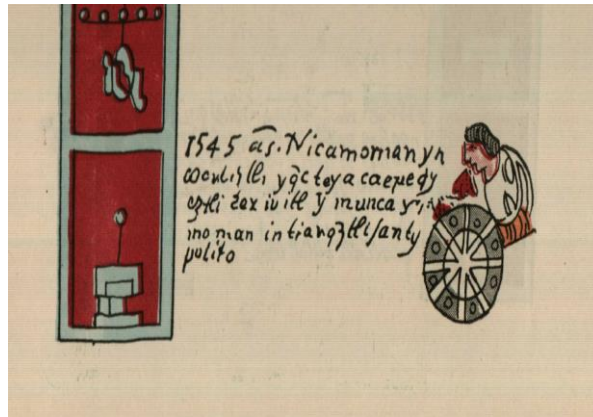 1545 as. Nicamoman yn
cocoliztli yq̄c toya caeeedy
eztli ce xivitl y munca yn
moman intianqztli santy
polito